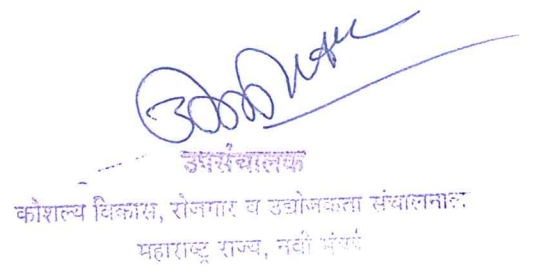 उपसंचालक
कौशल्य विकास, रोजगार व उद्योजकता संचालनालय
महाराष्ट्र राज्य, नवी मुंबई